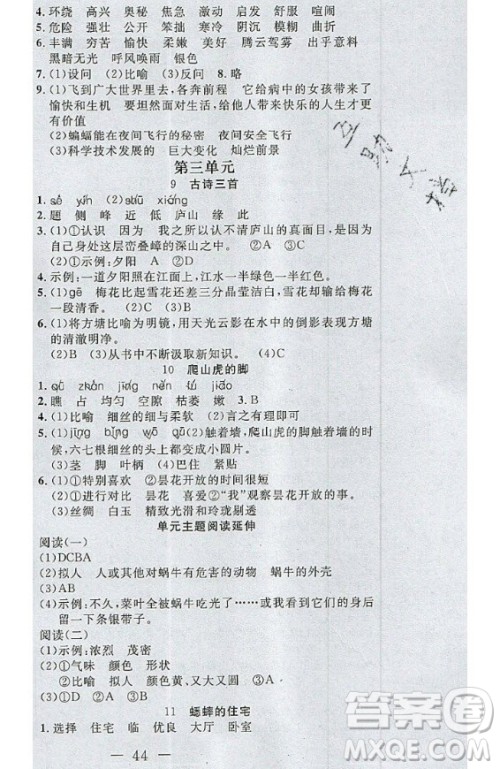 4. 环绕 高兴 奥秘 焦急 激动 启发 舒服 喧闹
5. 危险 强壮 公开 笨拙 寒冷 阴沉 模糊 曲折
6. 丰满 穷苦 愉快 柔嫩 美好 腾云驾雾 出乎意料
黑暗无光 呼风唤雨 银色
7. (1)设问 (2)比喻 (3)反问 8. 略
9. (1)飞到广大世界里去,各奔前程 它给病中的女孩带来了
愉快和生机 要坦然面对生活,给他人带来快乐的人生才更
有价值
(2)蝙蝠能在夜间飞行的秘密 夜间飞行
(3)科学技术发展的 巨大变化 灿烂前景
第三单元
9 古诗三首
1. sè yín (2)shū xiāng
2. 题 侧 峰 近 低 庐山 缘 此
3. (1)①认识 因为 我之所以认不清庐山的真面目,是因为自
己身处这层峦叠嶂的深山之中。 ②A ③C
(2)①示例:夕阳 ②A ③D
4. 示例:一道夕阳照在江面上,江水一半绿色一半红色。
5. (1)gē 梅花比起雪花还差三分晶莹洁白,雪花却输给梅花
一段清香。
6. (1)将方塘比喻为明镜,用天光云影在水中的倒影表现方塘
的清澈明净。
(2)B (3)从书中不断汲取新知识。 (4)C
10 爬山虎的脚
2. 瞧 占 均匀 空隙 枯萎 嫩 3. B
4. (1)比喻 细丝的细与柔软 (2)言之有理即可
5. (1)jīng bǐng wō qū (2)触着墙,爬山虎的脚触着墙的时候,
六七根细丝的头上都变成小圆片。
(3)茎 脚 叶柄 (4)巴住 紧贴
6. (1)①特别喜欢 ②昙花开放的时间很短
(2)①与昙花再见 昙花 喜爱②“我”观察昙花开放的事。
(3)丝绸 白玉 精致光滑的和玲珑剔透
单元主题阅读延伸
阅读(一)
(1)DCBA
(2)拟人 人成了对蜗牛有危害的动物 蜗牛的外壳
(3)AB
(4)示例:不久,菜叶全被蜗牛吃光了……或我们家的窗户上留
下一条银带子。
阅读(二)
(1)示例:浓烈 茂密
(2)①气味 颜色 形状
②比喻 拟人 颜色黄,又大又圆
(3)①D ②A ③C
11 蟋蟀的住宅
1. 选择 住宅 临 优良 大厅 卧室
— 44 —
答案圈
MXQE.COM